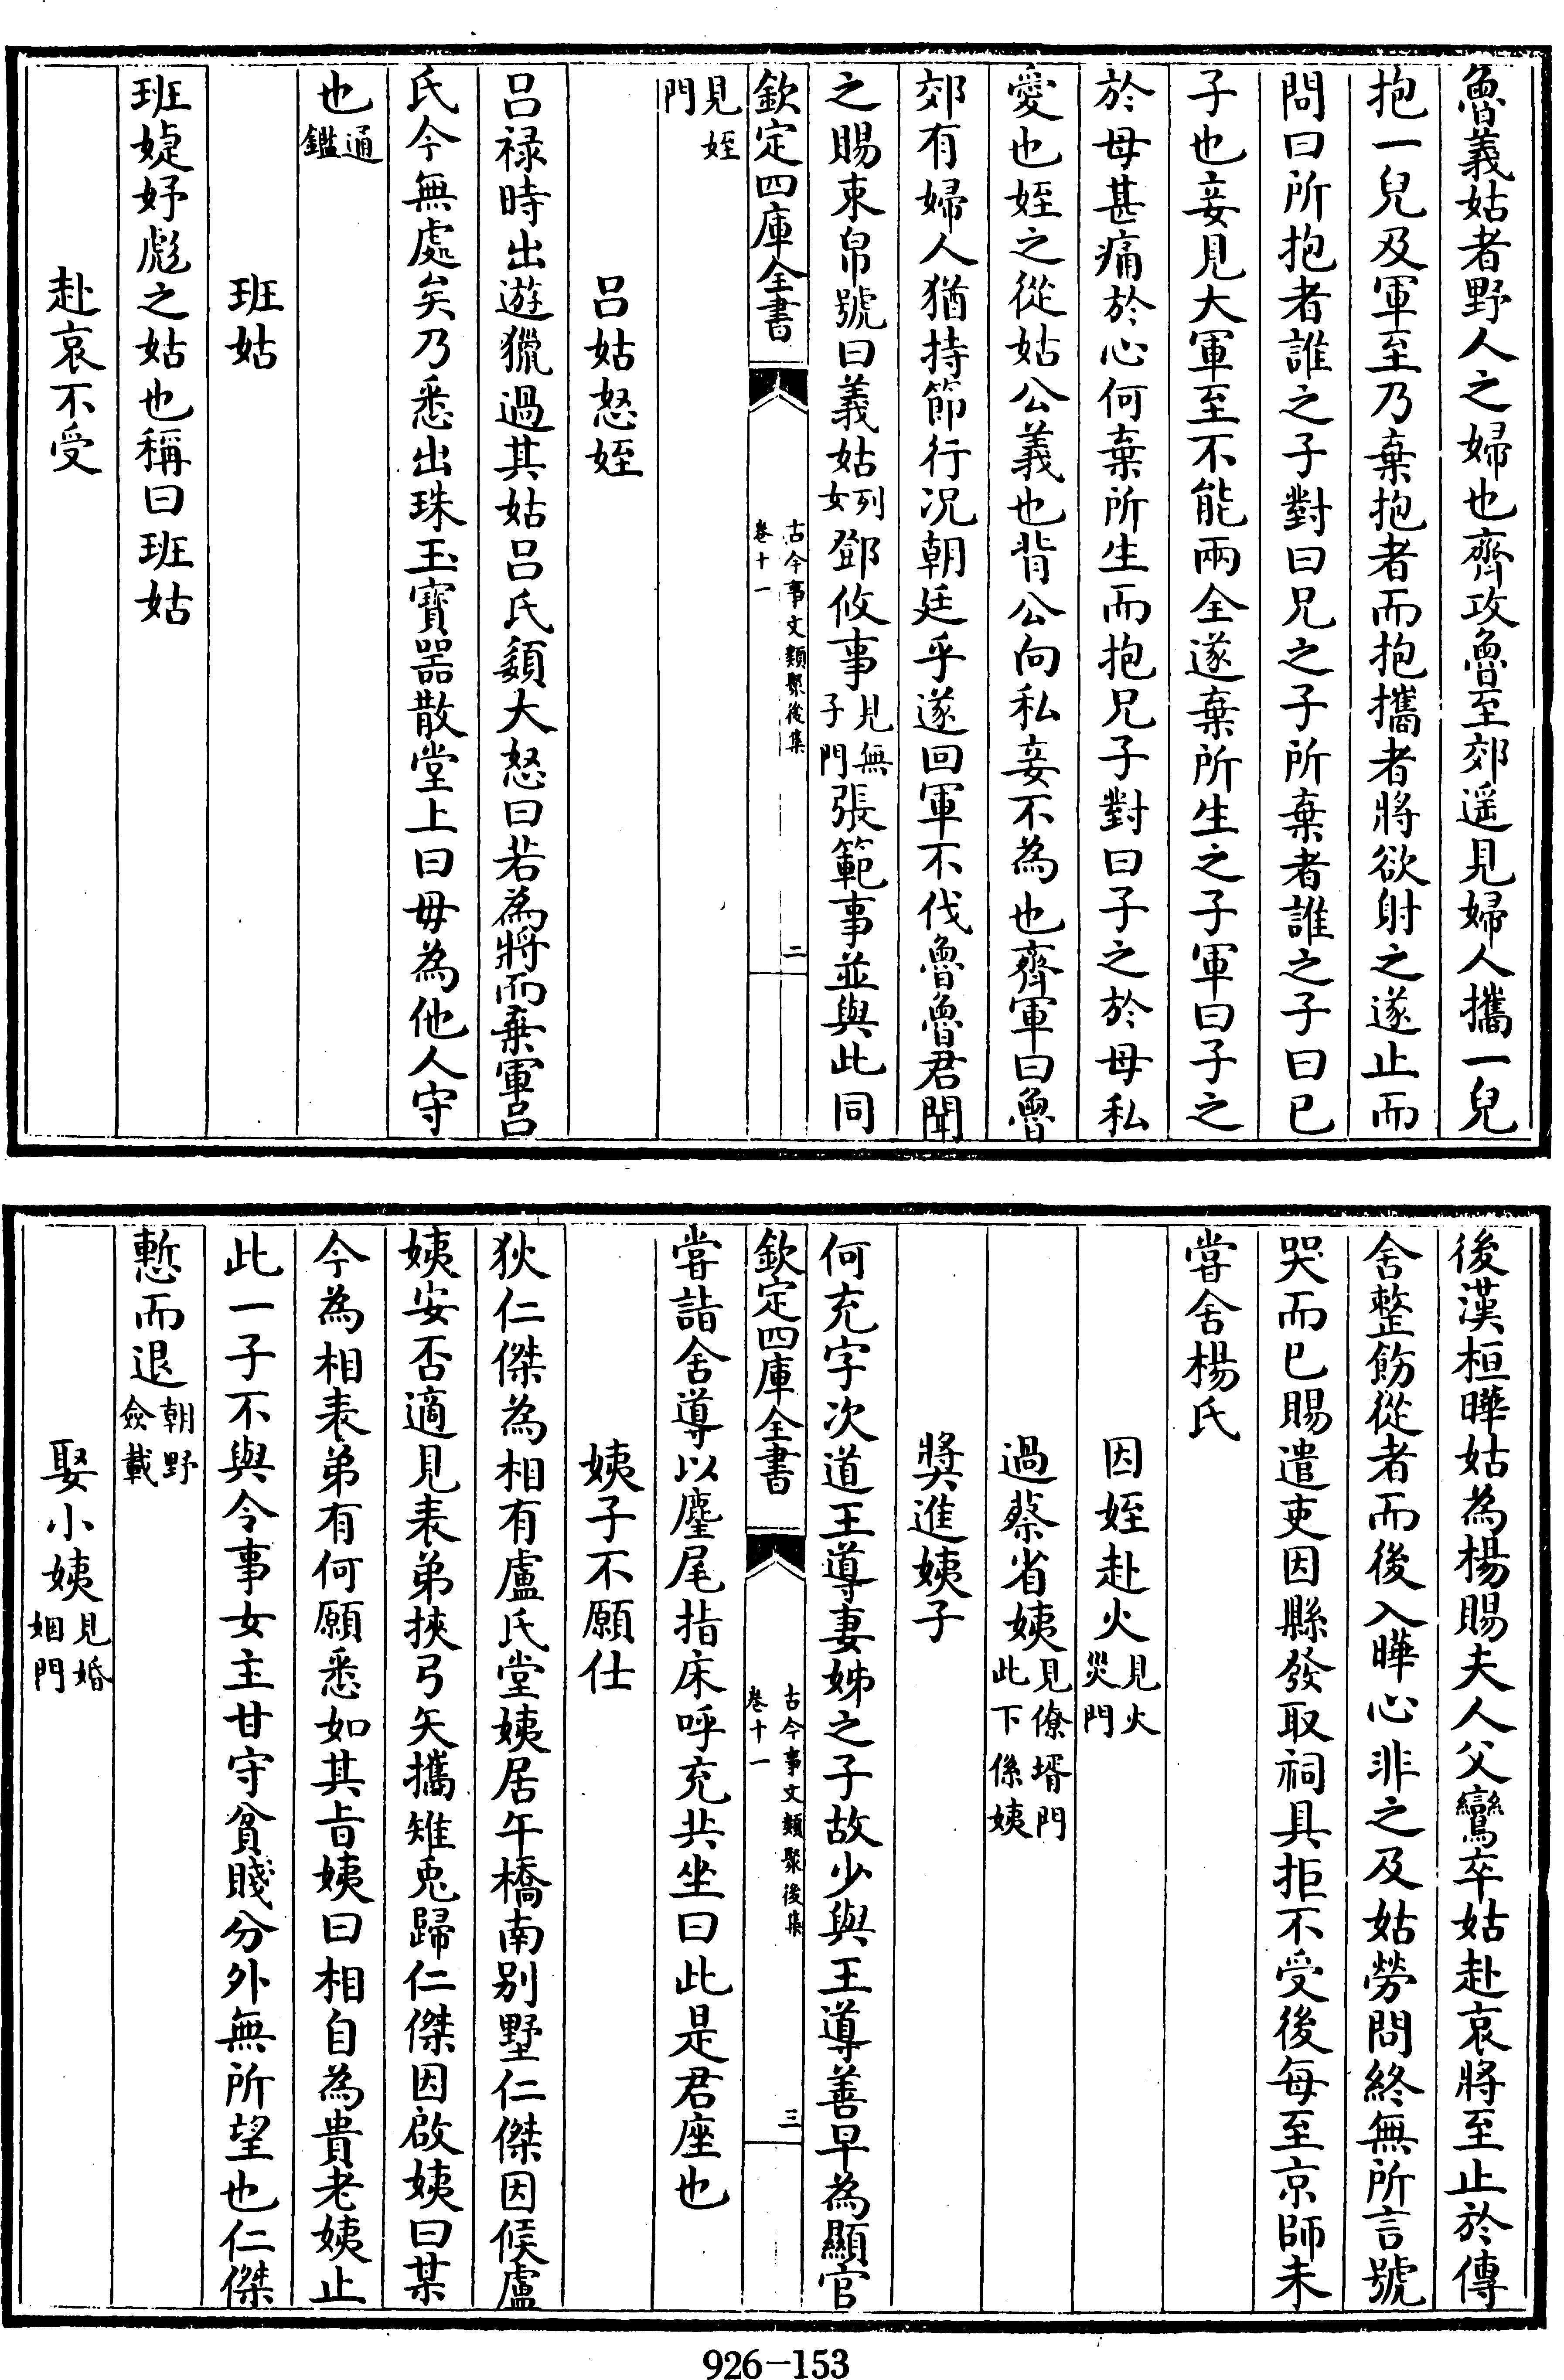 魯義姑者野人之婦也齊攻魯至郊遥見婦人攜一兒
抱一兒及軍至乃棄抱者而抱攜者將欲射之遂止而
問曰所抱者誰之子對曰兄之子所棄者誰之子曰已
子也妾見大軍至不能兩全遂棄所生之子軍曰子之
於母甚痛於心何棄所生而抱兄子對曰子之於母私
愛也姪之從姑公義也背公向私妾不為也齊軍曰魯
郊有婦人猶持節行况朝廷乎遂回軍不伐魯魯君聞
之賜束帛號曰義姑列女鄧攸事見無子門張範事並與此同
欽定四庫全書 古今事文類聚後集 卷十一 二
見姪門
吕姑怒姪
吕禄時出遊獵過其姑吕氏纇大怒曰若為將而棄軍吕
氏今無處矣乃悉出珠玉寳器散堂上曰毋為他人守
也通鑑
班姑
班婕妤彪之姑也稱曰班姑
赴哀不受
後漢桓曄姑為楊賜夫人父鸞卒姑赴哀將至止於傳
舍整飭從者而後入曄心非之及姑勞問終無所言號
哭而已賜遣吏因縣發取祠具拒不受後每至京師未
嘗舍楊氏
因姪赴火見火災門
過蔡省姨見僚壻門此下係姨
獎進姨子
何充字次道王導妻姊之子故少與王導善早為顯官
欽定四庫全書 古今事文類聚後集 卷十一 三
嘗詣舍導以麈尾指床呼充共坐曰此是君座也
姨子不願仕
狄仁傑為相有盧氏堂姨居午橋南别墅仁傑因候盧
姨安否適見表弟挾弓矢攜雉兎歸仁傑因啟姨曰某
今為相表弟有何願悉如其㫖姨曰相自為貴老姨止
此一子不與令事女主甘守貧賤分外無所望也仁傑
慙而退朝野僉載
娶小姨見婚姻門
926-153